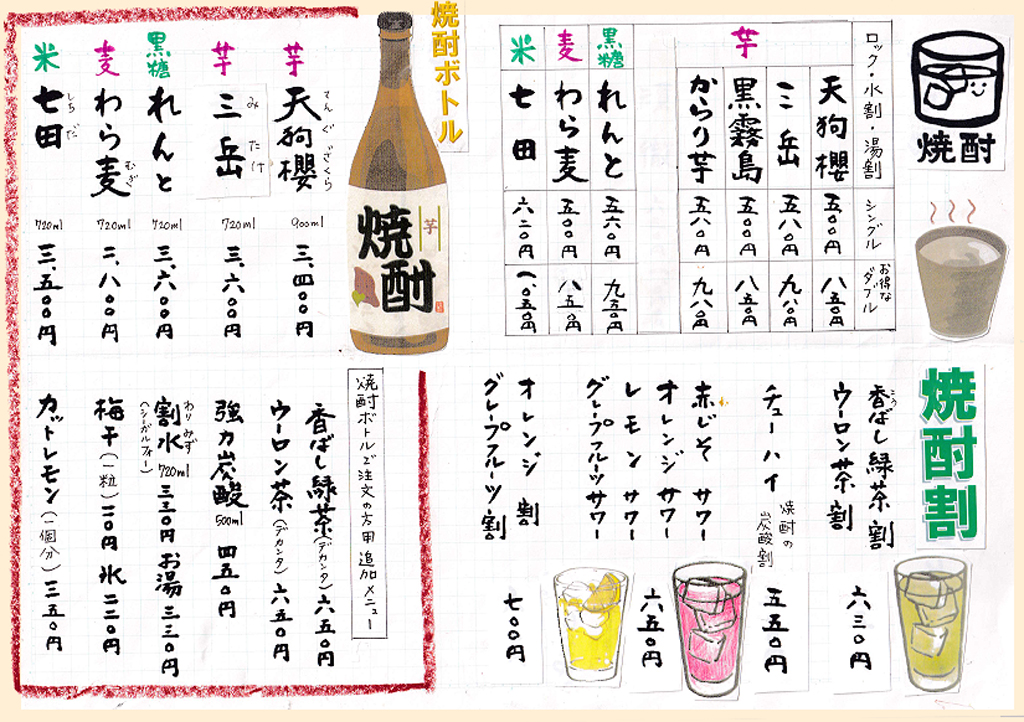 焼酎
ロック・水割・湯割
シングル
お得な
ダブル
芋
天狗櫻
五八〇円
八五〇円
三岳
五八〇円
九八〇円
黒霧島
五〇〇円
八五〇円
からり芋
五八〇円
九八〇円
黒糖
れんと
五六〇円
九五〇円
麦
わら麦
五〇〇円
八五〇円
米
七田
六二〇円
一、〇五〇円
焼酎ボトル
焼酎
芋
芋
天狗櫻
てんぐざくら
900ml
三、四〇〇円
芋
三岳
みたけ
720ml
三、六〇〇円
黒糖
れんと
720ml
三、六〇〇円
麦
わら麦
むぎ
720ml
二、八〇〇円
米
七田
しちだ
720ml
三、五〇〇円
焼酎割
香ばし緑茶割
こう
ウーロン茶割
六三〇円
チューハイ
焼酎の
炭酸割
五五〇円
赤じそサワー
オレンジサワー
レモンサワー
グレープフルーツサワー
六五〇円
オレンジ割
グレープフルーツ割
七〇〇円
焼酎ボトルご注文の方用 追加メニュー
香ばし緑茶(デカンタ)六五〇円
ウーロン茶(デカンタ)六五〇円
強力炭酸 500ml 四五〇円
割水 720ml 三三〇円 お湯 三三〇円
わりみず
(シーガルフォー)
梅干(一粒)二〇円 氷 二二〇円
カットレモン(一個分)三五〇円